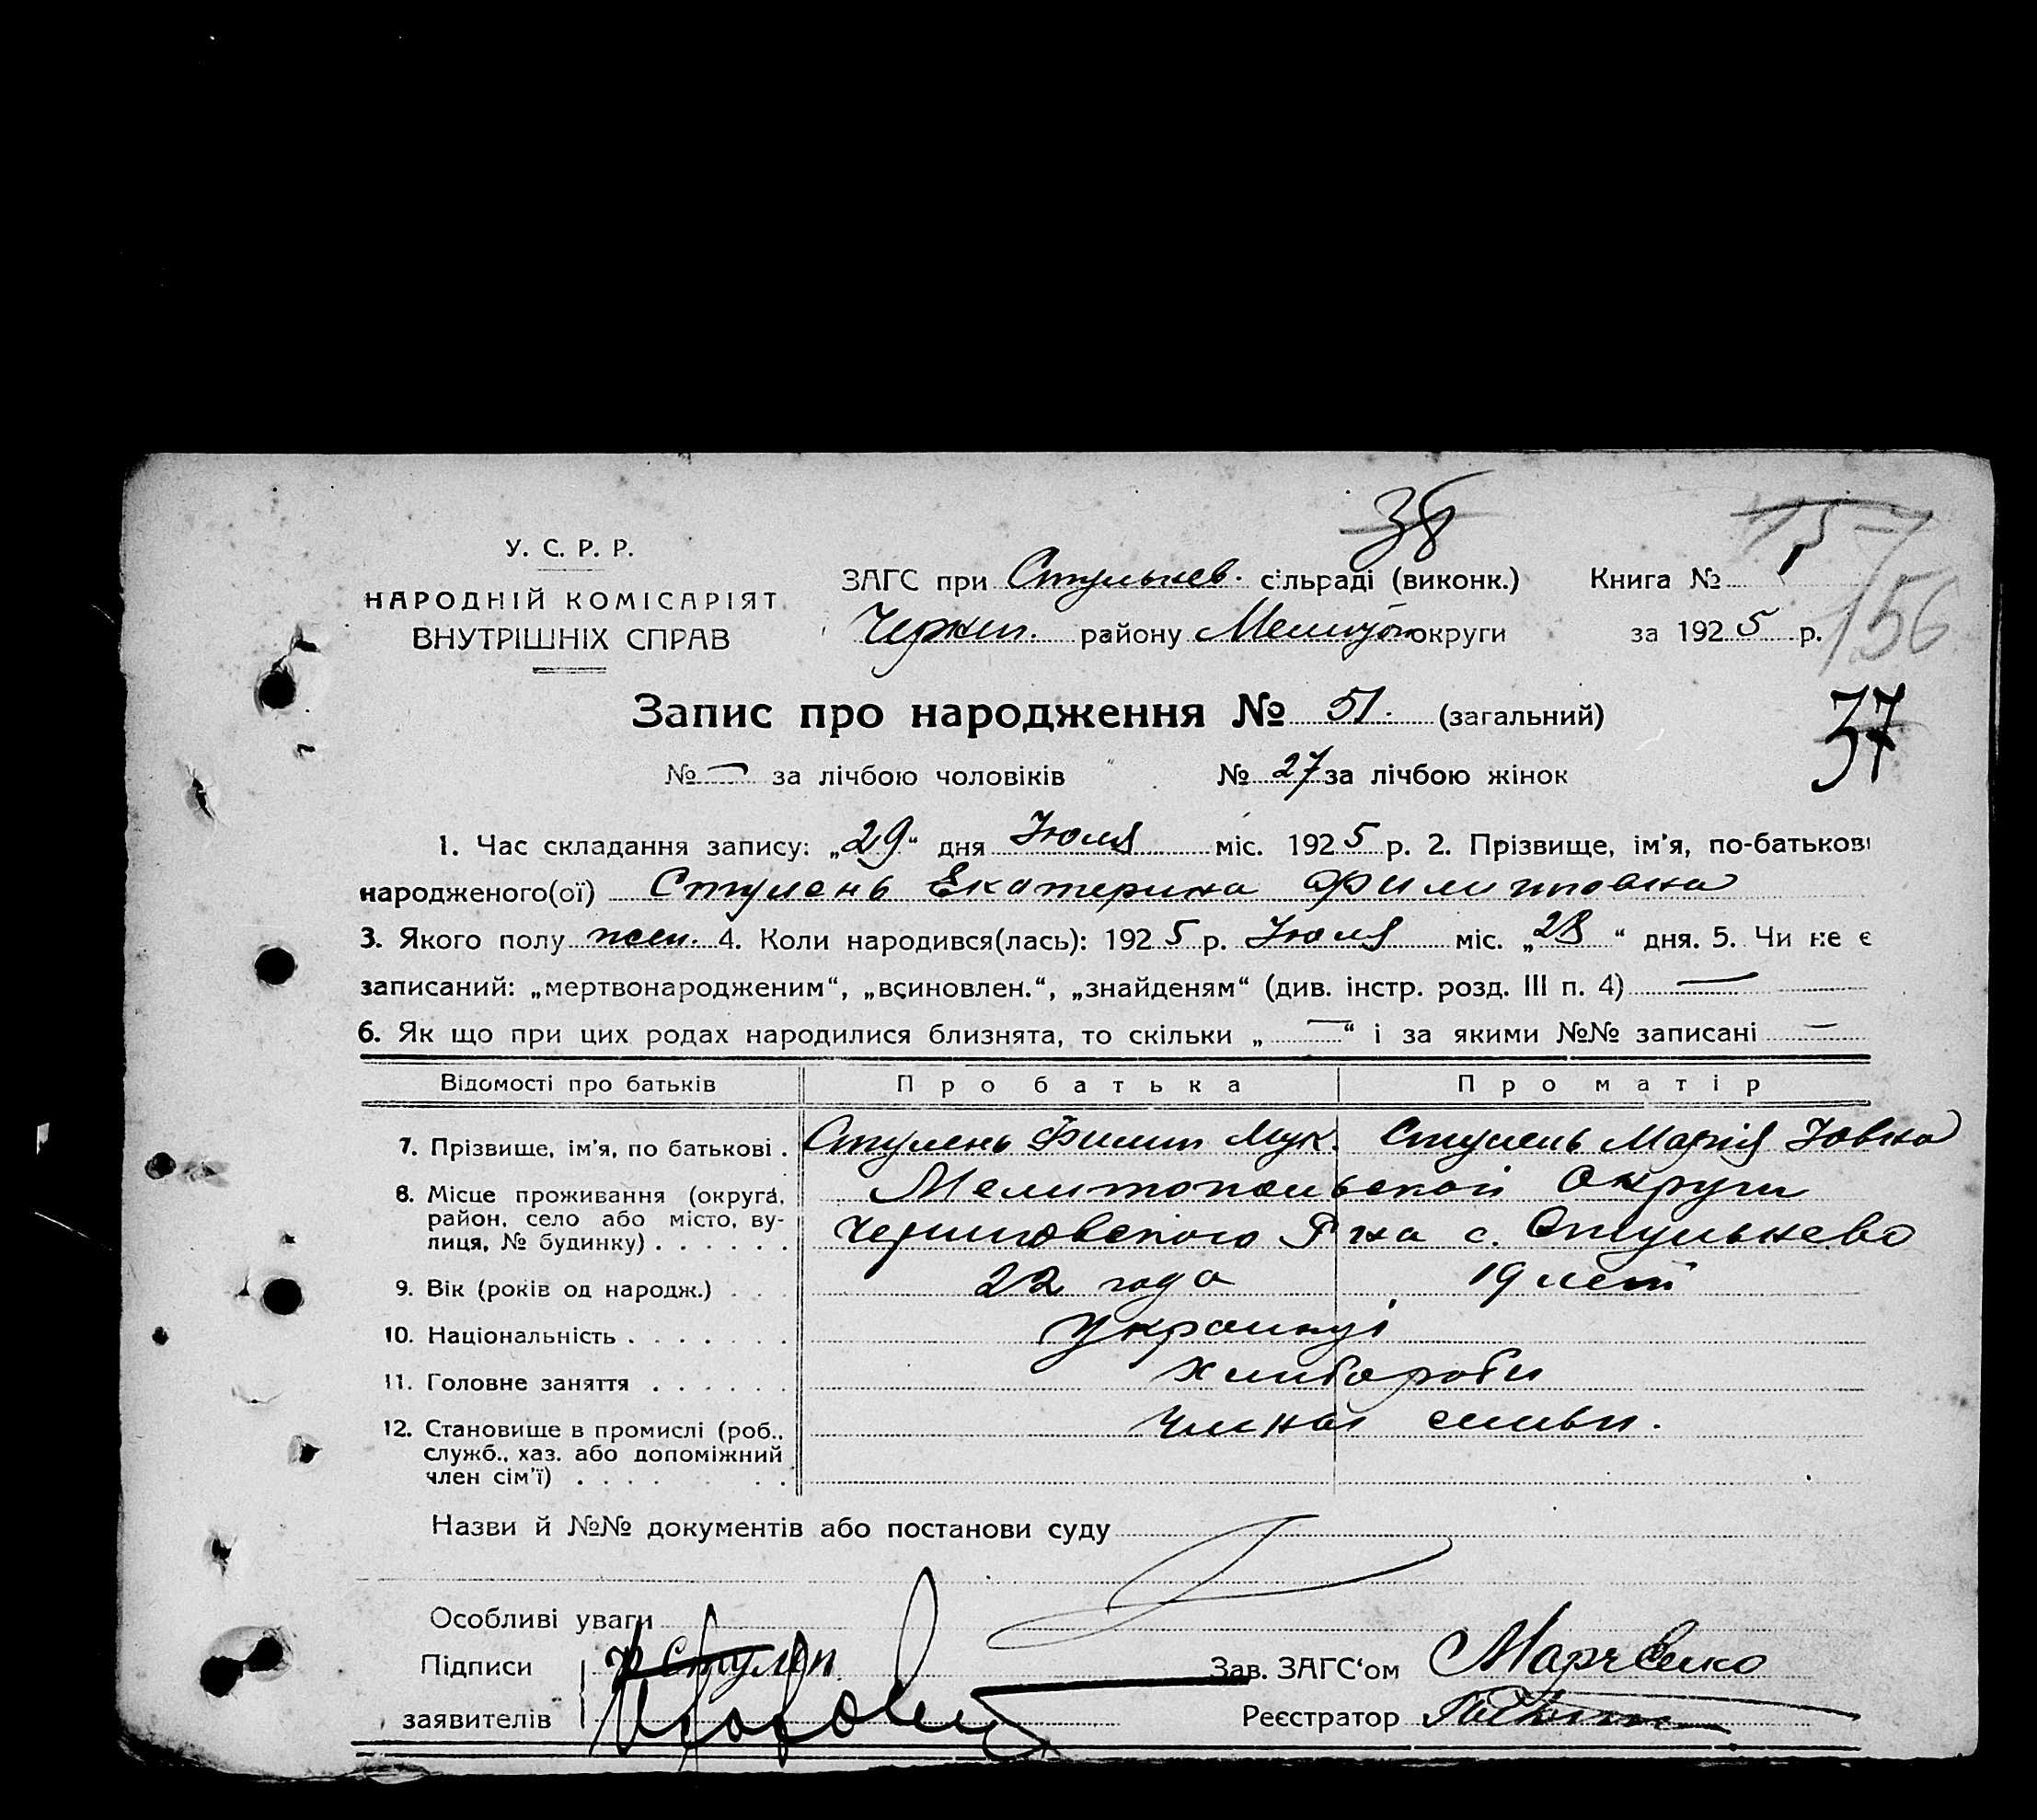 38
157
156
У. С. Р. Р.
НАРОДНІЙ КОМІСАРІЯТ
ВНУТРІШНІХ СПРАВ
ЗАГС при Стульнев. сільраді (виконк.) Книга № 1
району Мелитоп округи за 1925 р.
37
Запис про народження № 51. (загальний)
№ — за лічбою чоловіків № 27 за лічбою жінок
1. Час складання запису: „29“ дня Июля міс. 1925 р. 2. Прізвище, ім'я, по-батькові
народженого(ої) Стулень Екатерина Филипповна
3. Якого полу жен. 4. Коли народився(лась): 1925 р. Июля міс. „28“ дня. 5. Чи не є
записаний: „мертвонародженим“, „всиновлен.“, „знайденям“ (див. інстр. розд. III п. 4) —
6. Як що при цих родах народилися близнята, то скільки „—“ і за якими №№ записані —
Відомості про батьків Про батька Про матір
7. Прізвище, ім'я, по батькові . Стулень Филип Мук. Стулень Мария
8. Місце проживання (округа, Мелитопольской Округи
район, село або місто, ву- Черниговского Р на с. Стульнево
лиця, № будинку) . . . . . .
9. Вік (років од народж.) . . . 22 года 19 лет
10. Національність . . . . . . . Украинці
11. Головне заняття . . . . . . Хлибороби
12. Становище в промислі (роб., семьи.
служб., хаз. або допоміжний
член сім'ї) . . . . . . .
Назви й №№ документів або постанови суду
Особливі уваги
Підписи Ф Стулен Зав. ЗАГС‘ом Марченко
заявителів Реєстратор